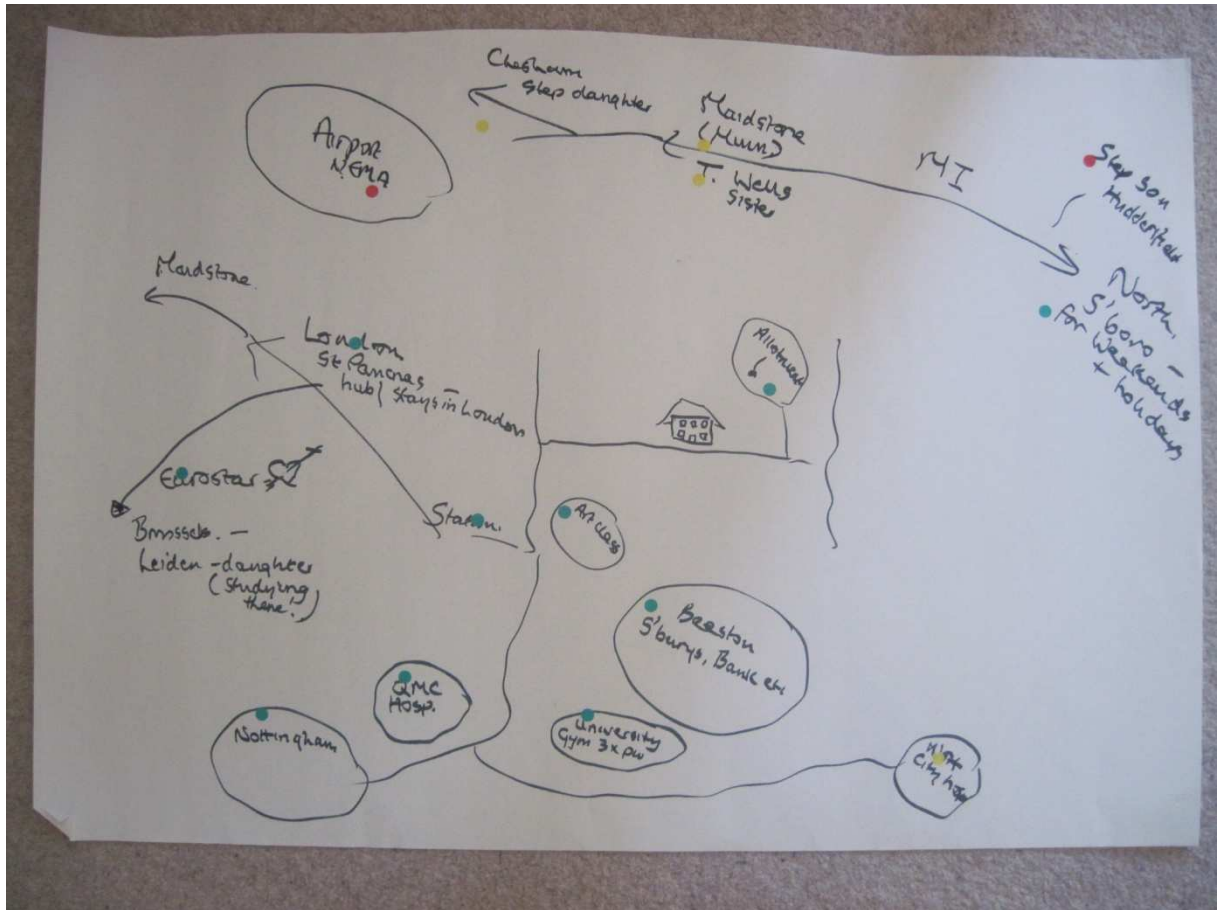 Chesham
Step daughter
Airport
NEMA
Maidstone
(Mum)
T. Wells
Sister
M1
Step son
Huddersfield
North.
S'boro –
for Weekends
+ holidays
Maidstone.
London
St Pancras –
hub/ stays in London
Allotment
Eurostar
Brussels. –
Leiden – daughter
(studying
there!)
Station.
Art class
Beeston
S'burys, Bank etc
QMC
Hosp.
Nottingham
University
Gym 3x pw
City Hosp